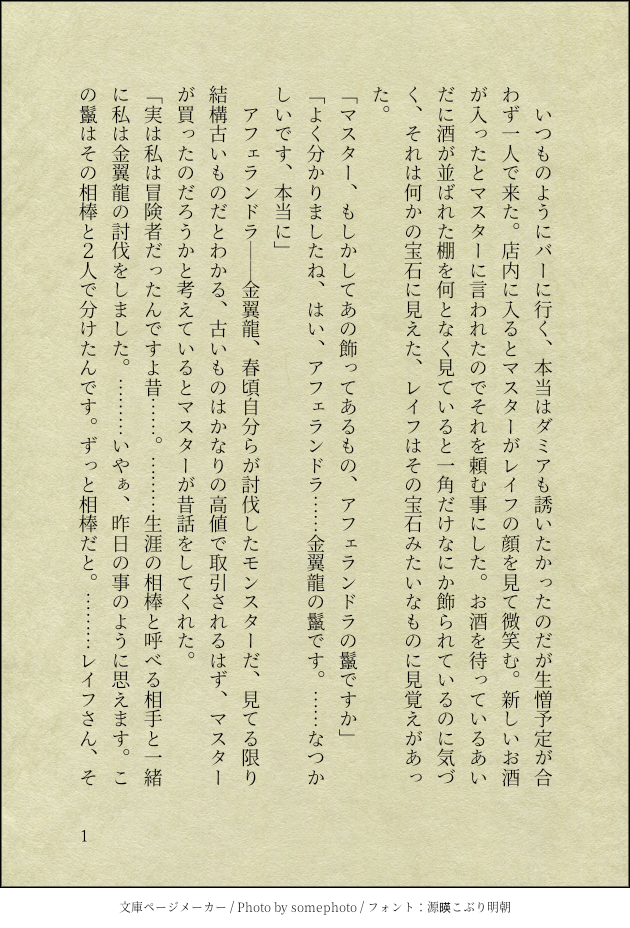 いつものようにバーに行く、本当はダミアも誘いたかったのだが生憎予定が合
わず一人で来た。店内に入るとマスターがレイフの顔を見て微笑む。新しいお酒
が入ったとマスターに言われたのでそれを頼む事にした。お酒を待っているあい
だに酒が並ばれた棚を何となく見ていると一角だけなにか飾られているのに気づ
く、それは何かの宝石に見えた、レイフはその宝石みたいなものに見覚えがあっ
た。
「マスター、もしかしてあの飾ってあるもの、アフェランドラの鬣ですか」
「よく分かりましたね、はい、アフェランドラ……金翼龍の鬣です。……なつか
しいです、本当に」
　アフェランドラ――金翼龍、春頃自分らが討伐したモンスターだ、見てる限り
結構古いものだとわかる、古いものはかなりの高値で取引されるはず、マスター
が買ったのだろうかと考えているとマスターが昔話をしてくれた。
「実は私は冒険者だったんですよ昔……。………生涯の相棒と呼べる相手と一緒
に私は金翼龍の討伐をしました。………いやぁ、昨日の事のように思えます。こ
の鬣はその相棒と２人で分けたんです。ずっと相棒だと。………レイフさん、そ
1
文庫ページメーカー / Photo by somephoto / フォント：源暎こぶり明朝